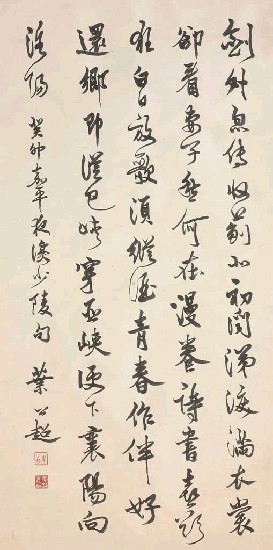 劍外忽傳收薊北初聞涕淚滿衣裳
卻看妻子愁何在漫卷詩書喜欲
狂白日放歌須縱酒青春作伴好
還鄉即從巴峽穿巫峽便下襄陽向
洛陽 癸卯嘉平夜讀少陵句 葉公超